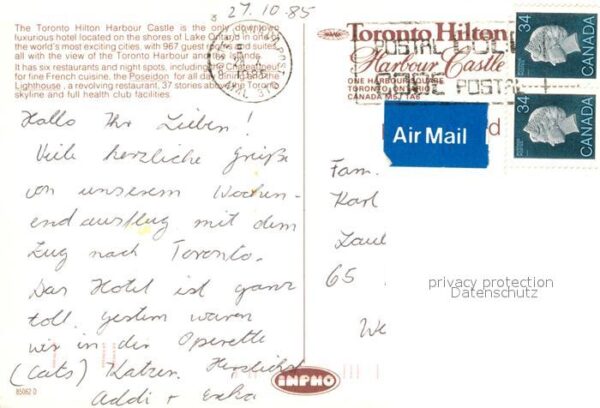 27.10.85
The Toronto Hilton Harbour Castle is the only downtown
luxurious hotel located on the shores of Lake Ontario in one of
the world's most exciting cities, with 967 guest rooms and suites,
all with the view of the Toronto Harbour and the islands.
It has six restaurants and night spots, including the
for fine French cuisine, the Poseidon for all day dining and the
Lighthouse, a revolving restaurant, 37 stories above the Toronto
skyline and full health club facilities.
Hallo Ihr Lieben!
Viele herzliche Grüße
von unserem Wochen-
endausflug mit dem
Zug nach Toronto.
Das Hotel ist ganz
toll, gestern waren
wir in der Operette
(Cats) Katzen. Herzlichst
Addi +
85062 D
INPHO
Toronto Hilton
Harbour Castle
ONE HARBOUR SQUARE
TORONTO, ONTARIO
CANADA M5J 1A6
POSTAL CODE
CODE POSTAL
34
CANADA
34
CANADA
Air Mail
Fam.
Karl
65
We
privacy protection
Datenschutz